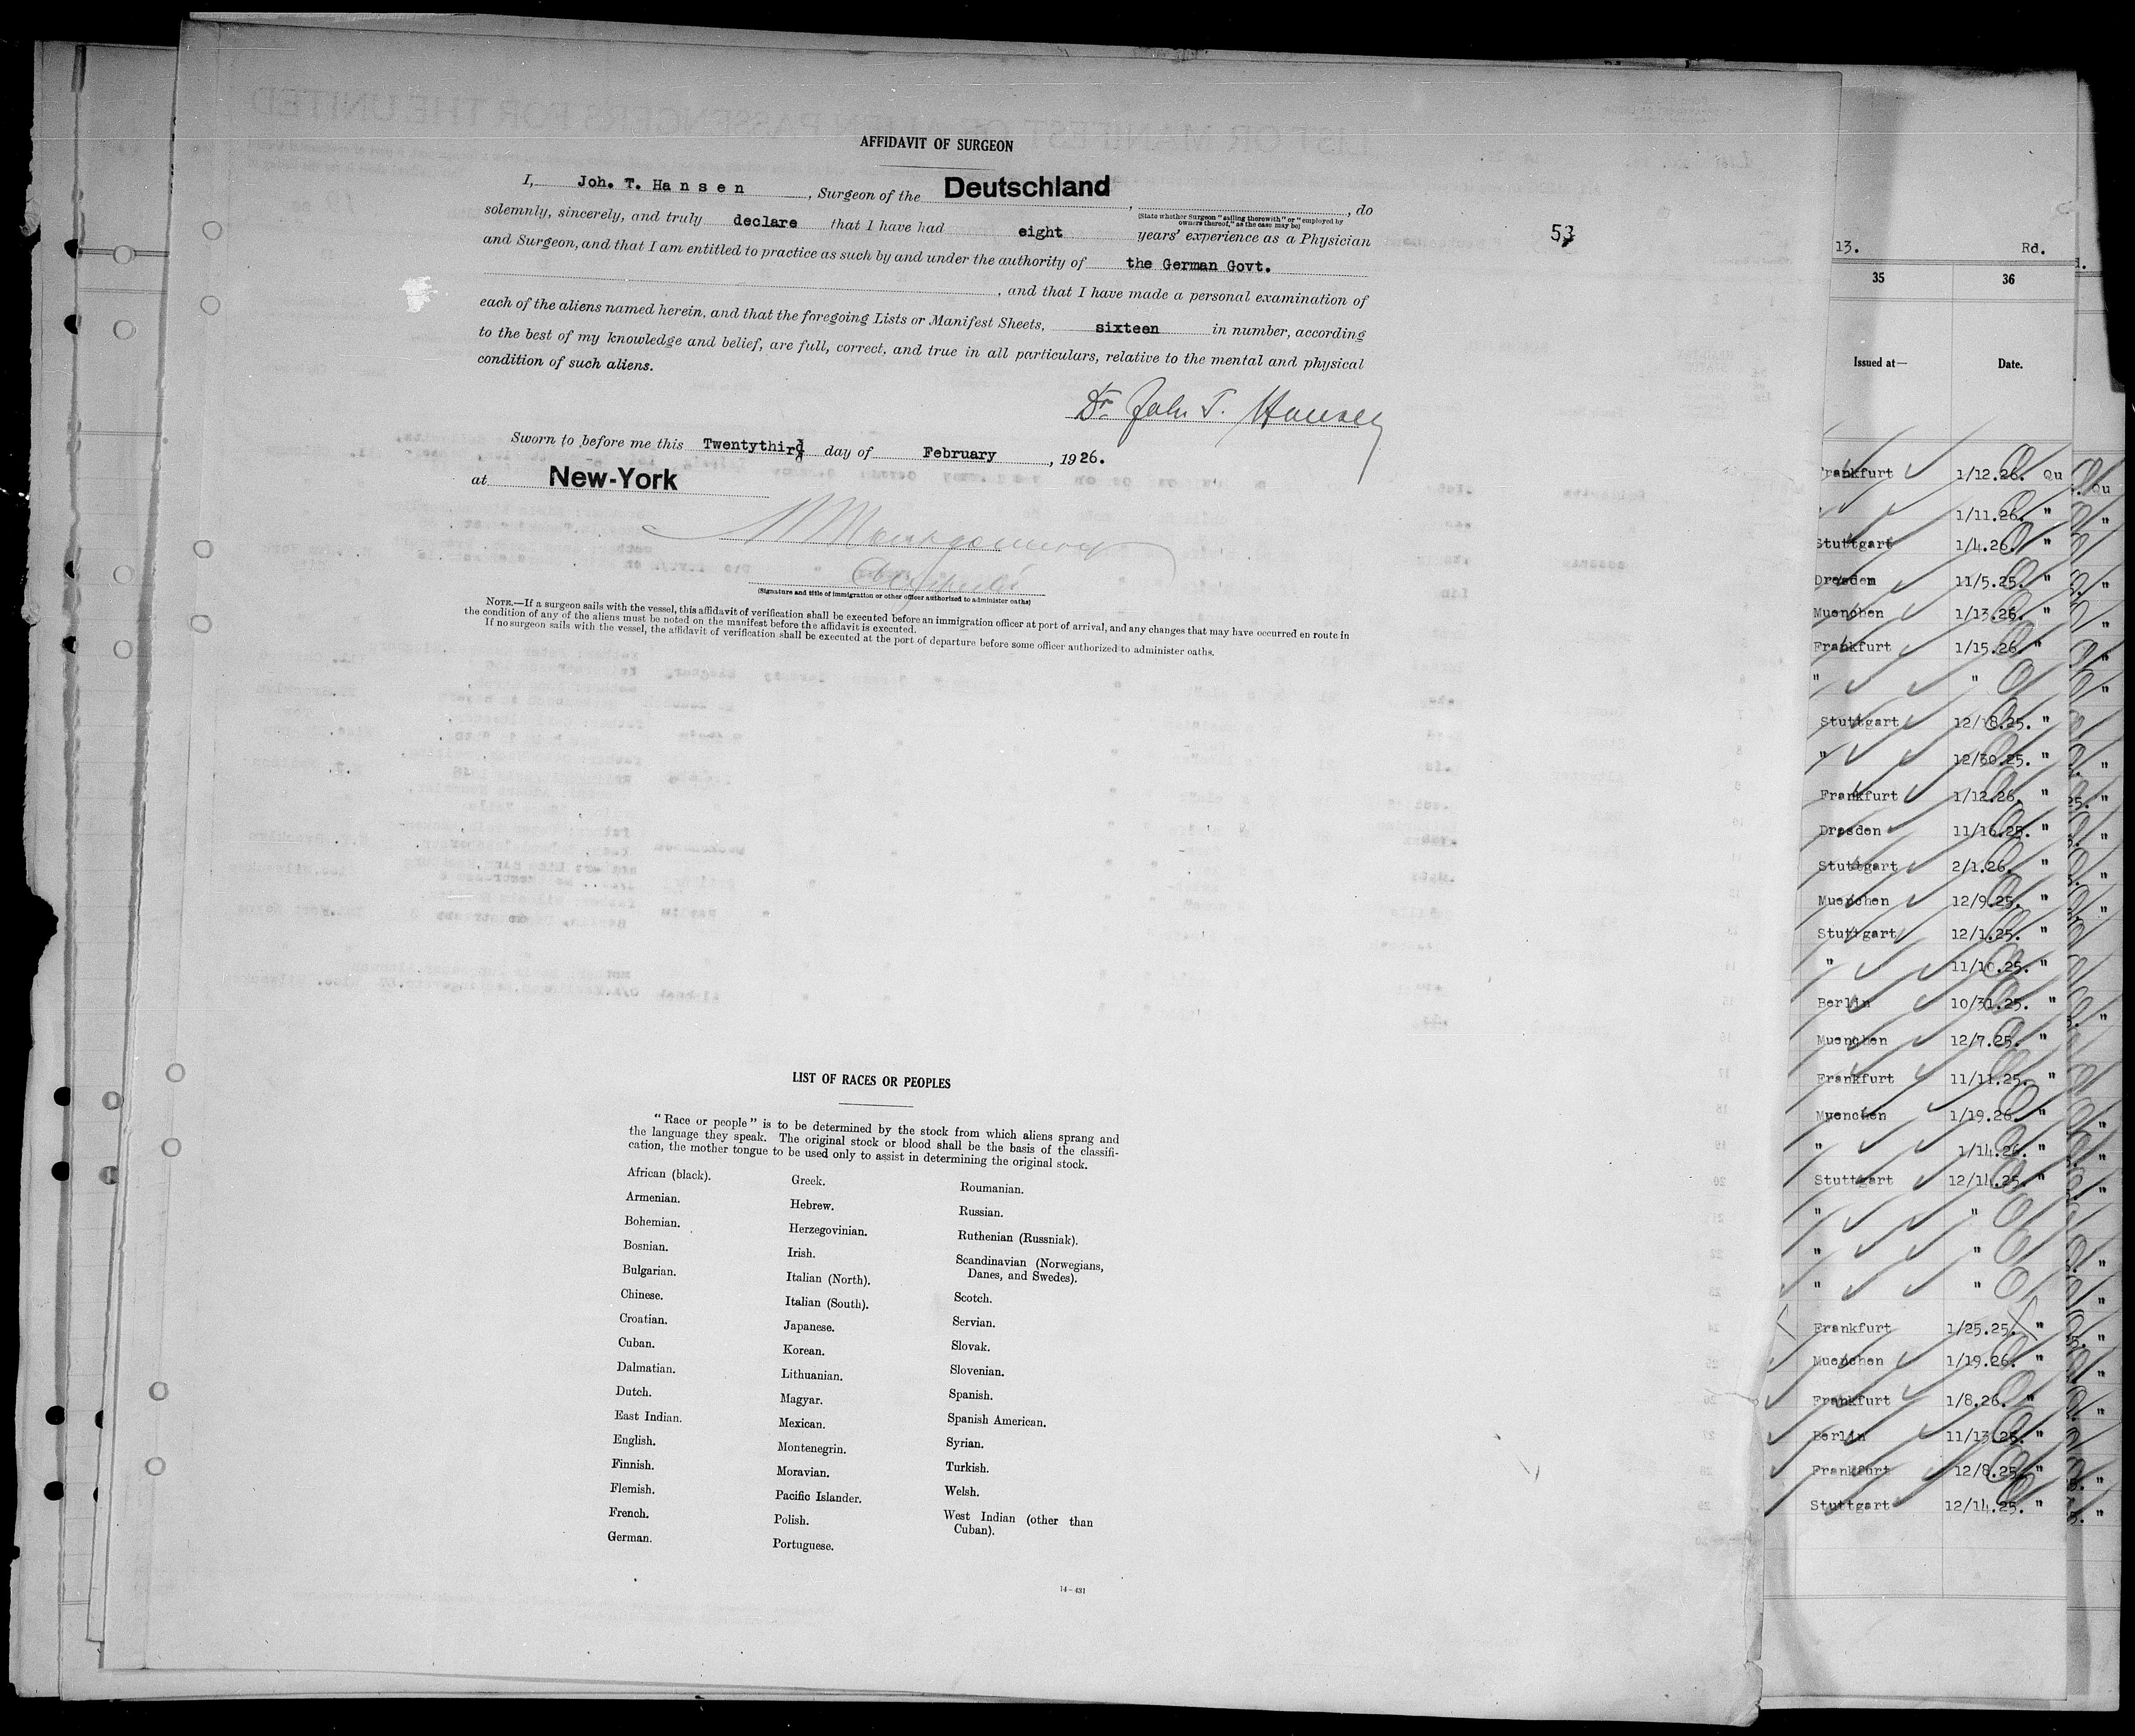 AFFIDAVIT OF SURGEON
I, Joh. T. Hansen, Surgeon of the Deutschland, , do
(State whether Surgeon "sailing therewith" or "employed by
owners thereof," as the case may be)
solemnly, sincerely, and truly declare that I have had eight years' experience as a Physician
and Surgeon, and that I am entitled to practice as such by and under the authority of the German Govt.
, and that I have made a personal examination of
each of the aliens named herein, and that the foregoing Lists or Manifest Sheets, sixteen in number, according
to the best of my knowledge and belief, are full, correct, and true in all particulars, relative to the mental and physical
condition of such aliens.
Dr. John T. Hansen
Sworn to before me this Twentythird day of February, 1926.
at New-York
(Signature and title of immigration or other officer authorized to administer oaths)
NOTE.—If a surgeon sails with the vessel, this affidavit of verification shall be executed before an immigration officer at port of arrival, and any changes that may have occurred en route in
the condition of any of the aliens must be noted on the manifest before the affidavit is executed.
If no surgeon sails with the vessel, the affidavit of verification shall be executed at the port of departure before some officer authorized to administer oaths.
53
LIST OF RACES OR PEOPLES
"Race or people" is to be determined by the stock from which aliens sprang and
the language they speak. The original stock or blood shall be the basis of the classifi-
cation, the mother tongue to be used only to assist in determining the original stock.
African (black).
Armenian.
Bohemian.
Bosnian.
Bulgarian.
Chinese.
Croatian.
Cuban.
Dalmatian.
Dutch.
East Indian.
English.
Finnish.
Flemish.
French.
German.
Greek.
Hebrew.
Herzegovinian.
Irish.
Italian (North).
Italian (South).
Japanese.
Korean.
Lithuanian.
Magyar.
Mexican.
Montenegrin.
Moravian.
Pacific Islander.
Polish.
Portuguese.
Roumanian.
Russian.
Ruthenian (Russniak).
Scandinavian (Norwegians,
Danes, and Swedes).
Scotch.
Servian.
Slovak.
Slovenian.
Spanish.
Spanish American.
Syrian.
Turkish.
Welsh.
West Indian (other than
Cuban).
14-431
13. Rd.
35 36
Issued at— Date.
Frankfurt 1/12.26. Qu
" 1/11.26. "
Stuttgart 1/4.26. "
Dresden 11/5.25. "
Muenchen 1/13.26. "
Frankfurt 1/15.26. "
" "
Stuttgart 12/18.25. "
" 12/30.25. "
Frankfurt 1/12.26. "
Dresden 11/16.25. "
Stuttgart 2/1.26. "
Muenchen 12/9.25. "
Stuttgart 12/1.25. "
" 11/10.25. "
Berlin 10/31.25. "
Muenchen 12/7.25. "
Frankfurt 11/11.25. "
Muenchen 1/19.26. "
" 1/14.26. "
Stuttgart 12/14.25. "
" "
" "
" "
Frankfurt 1/25.25. "
Muenchen 1/19.26. "
Frankfurt 1/8.26. "
Berlin 11/13.25. "
Frankfurt 12/8.25. "
Stuttgart 12/14.25. "